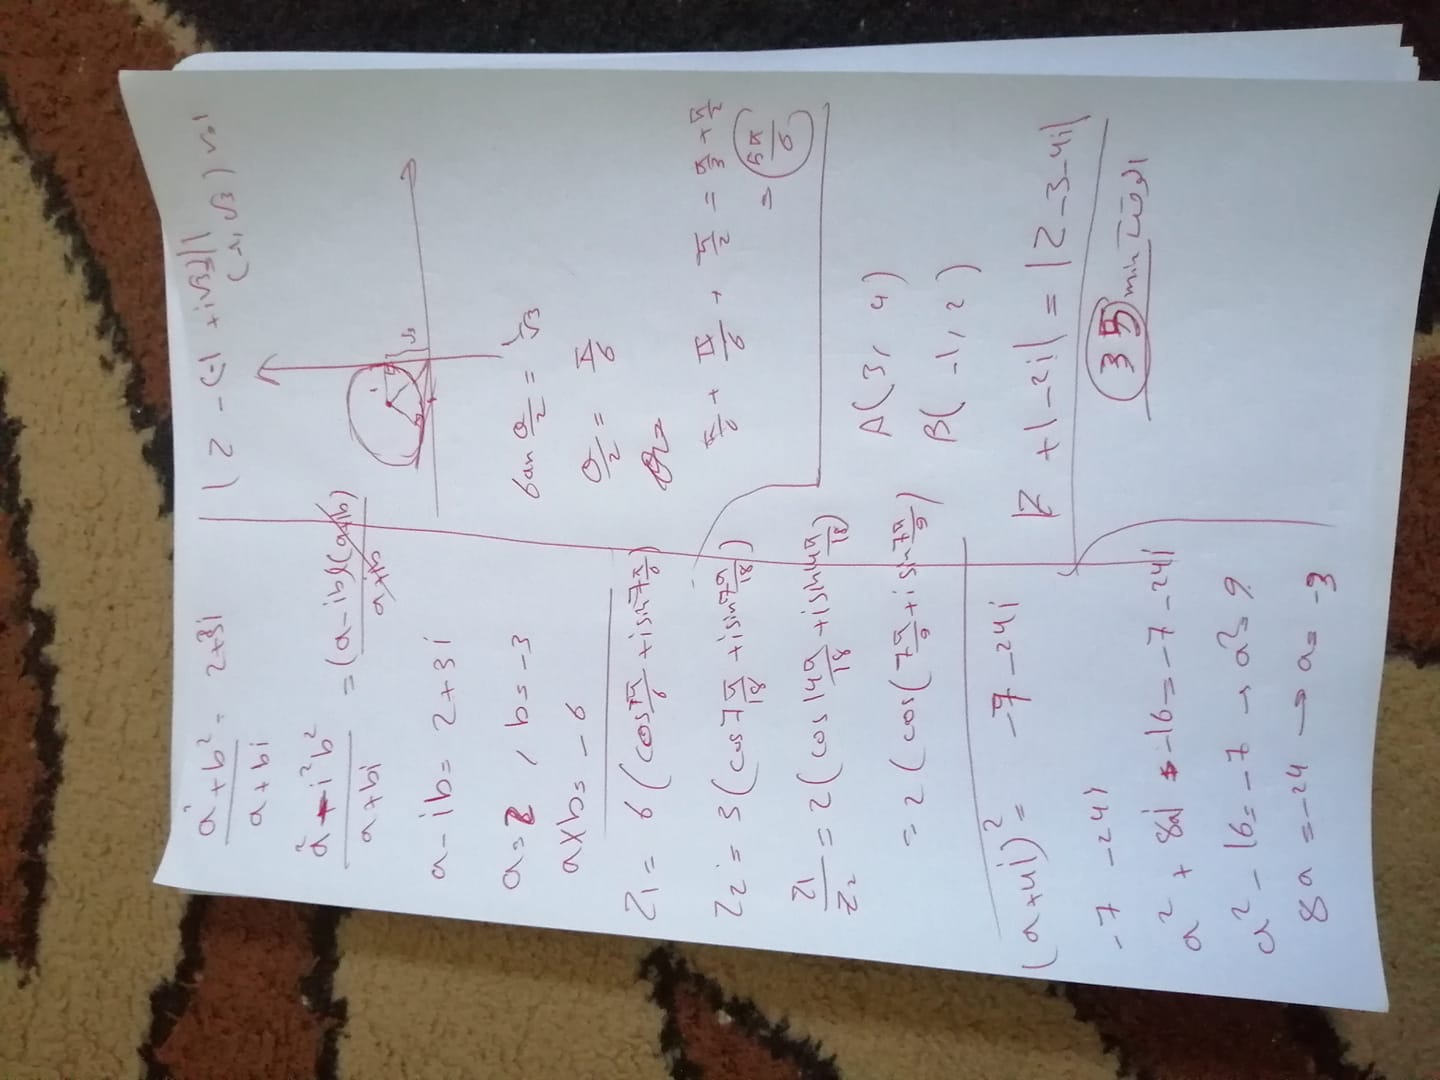 a² + b² / a + bi = 2+3i
a² - i²b² / a + bi = (a - ib)(a+ib) / a+ib
a - ib = 2 + 3i
a = 2 , b = -3
a×b = -6
Z1 = 6 ( cos 7π/6 + i sin 7π/6 )
Z2 = 3 ( cos 7π/18 + i sin 7π/18 )
Z1 / Z2 = 2 ( cos 14π/18 + i sin 14π/18 )
= 2 ( cos ( 7π/9 + i sin 7π/9 )
(a+4i)² = -7 -24i
-7 -24i
a² + 8ai -16 = -7 -24i
a² - 16 = -7 → a² = 9
8a = -24 → a = -3
| Z - (-1 + i√3) |
tan θ/2 = √3
θ/2 = π/6
π/6 + π/6 + π/2 = π/3 + π/2
= 5π/6
A( 3, 4 )
B( -1, 2 )
|Z +1 -2i| = | Z -3 -4i|
35 min